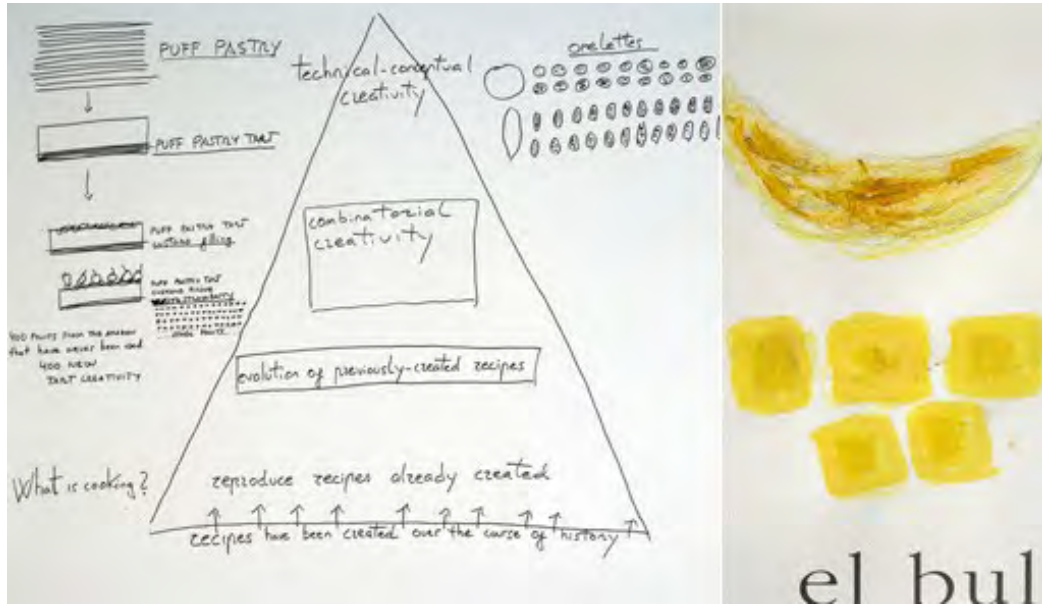 PUFF PASTRY
PUFF PASTRY TART
PUFF PASTRY TART
custard filling
PUFF PASTRY TART
400 FRUITS FROM THE AMAZON
that have never been used
400 NEW
TART CREATIVITY
What is cooking?
technical-conceptual
creativity
combinatorial
creativity
evolution of previously-created recipes
reproduce recipes already created
recipes have been created over the course of history
omelettes
el bul